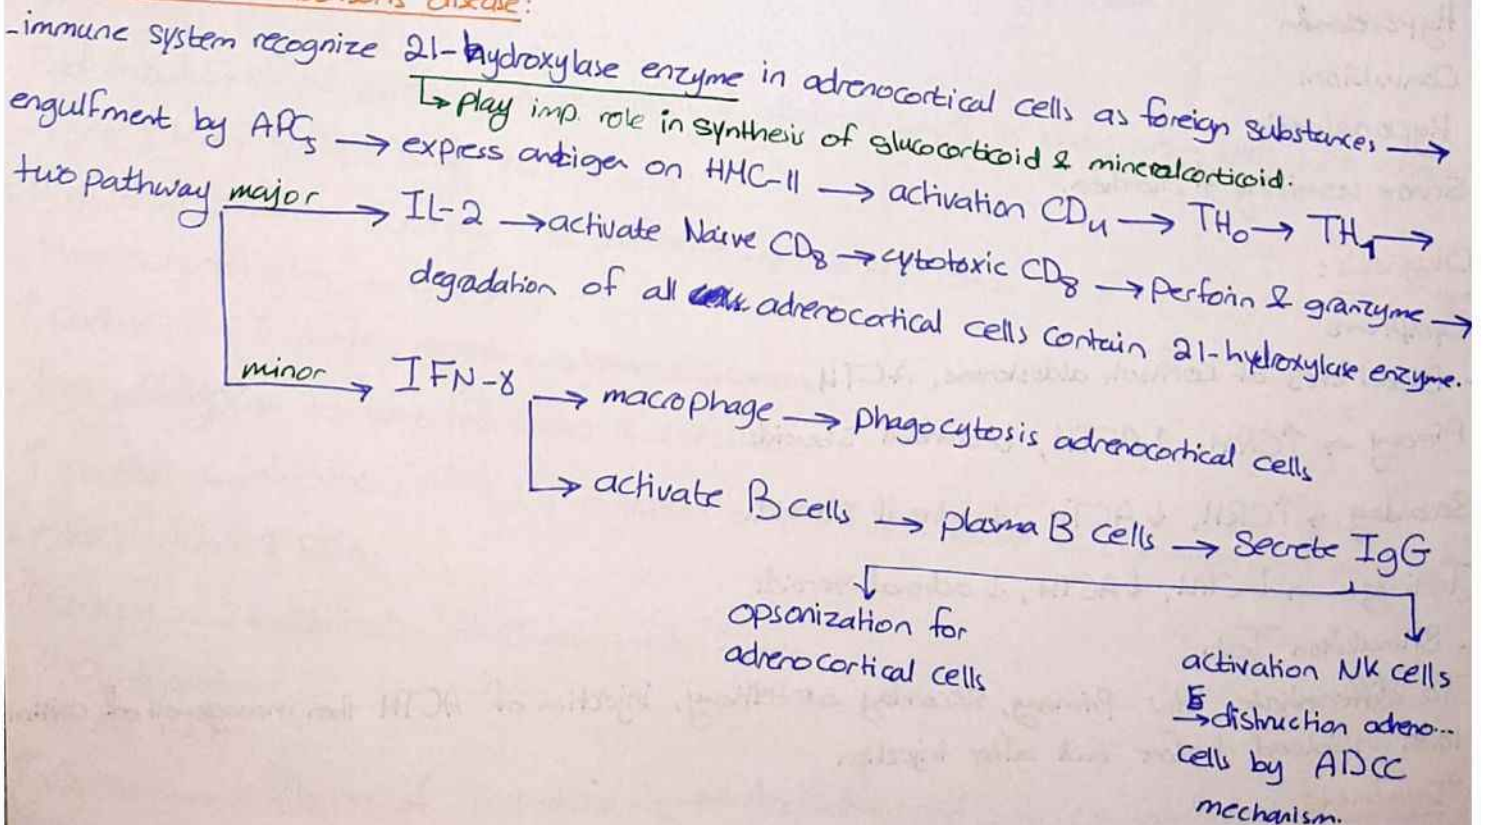 disease:
-immune system recognize 21-hydroxylase enzyme in adrenocortical cells as foreign substances →
↳ play imp. role in synthesis of glucocorticoid & mineralcorticoid.
engulfment by APCs → express antigen on HMC-II → activation CD4 → TH0 → TH1 →
two pathway major → IL-2 → activate Naive CD8 → cytotoxic CD8 → Perforin & granzyme →
degradation of all adrenocortical cells contain 21-hydroxylase enzyme.
minor → IFN-γ → macrophage → phagocytosis adrenocortical cells
↳ activate B cells → plasma B cells → secrete IgG
opsonization for
adrenocortical cells
activation NK cells
→ distruction adreno...
cells by ADCC
mechanism.